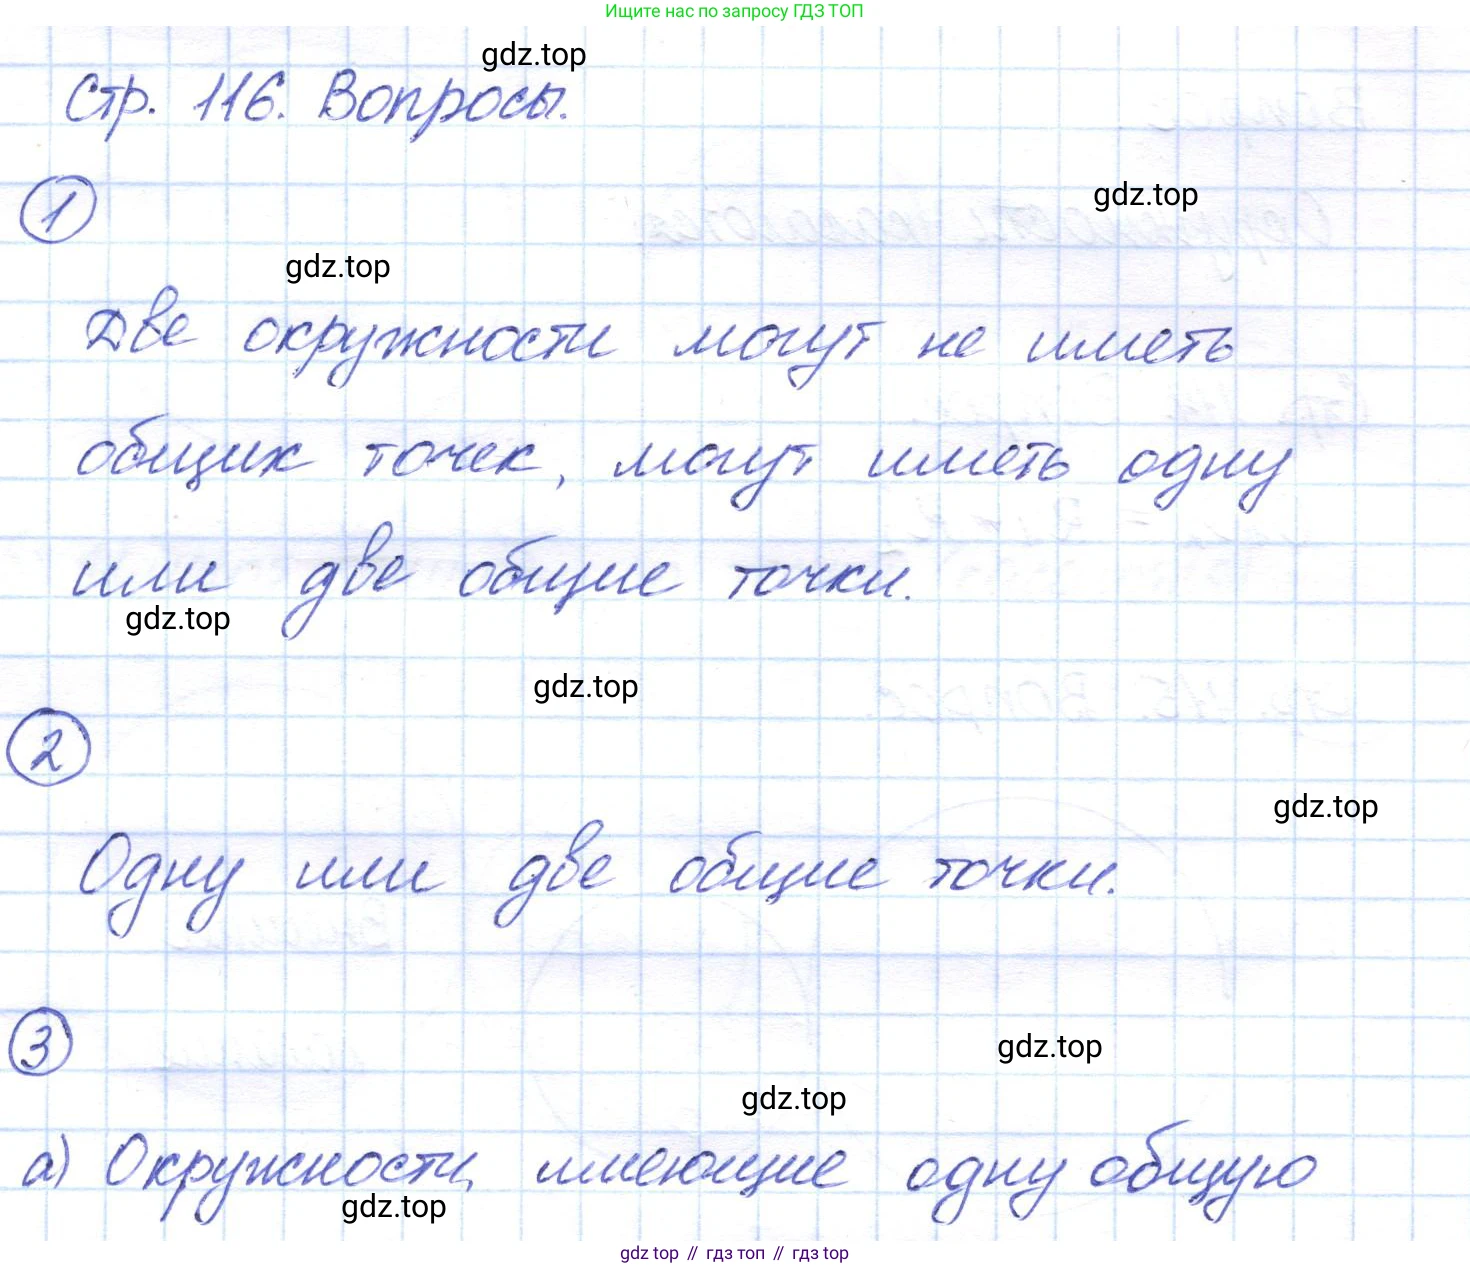 Ищите нас по запросу ГДЗ ТОП
gdz.top
Стр. 116. Вопросы.
gdz.top
1
gdz.top
Две окружности могут не иметь
общих точек, могут иметь одну
или две общие точки.
gdz.top
gdz.top
2
gdz.top
Одну или две общие точки.
3
gdz.top
gdz.top
а) Окружности, имеющие одну общую
gdz.top
gdz top // гдз топ // гдз top